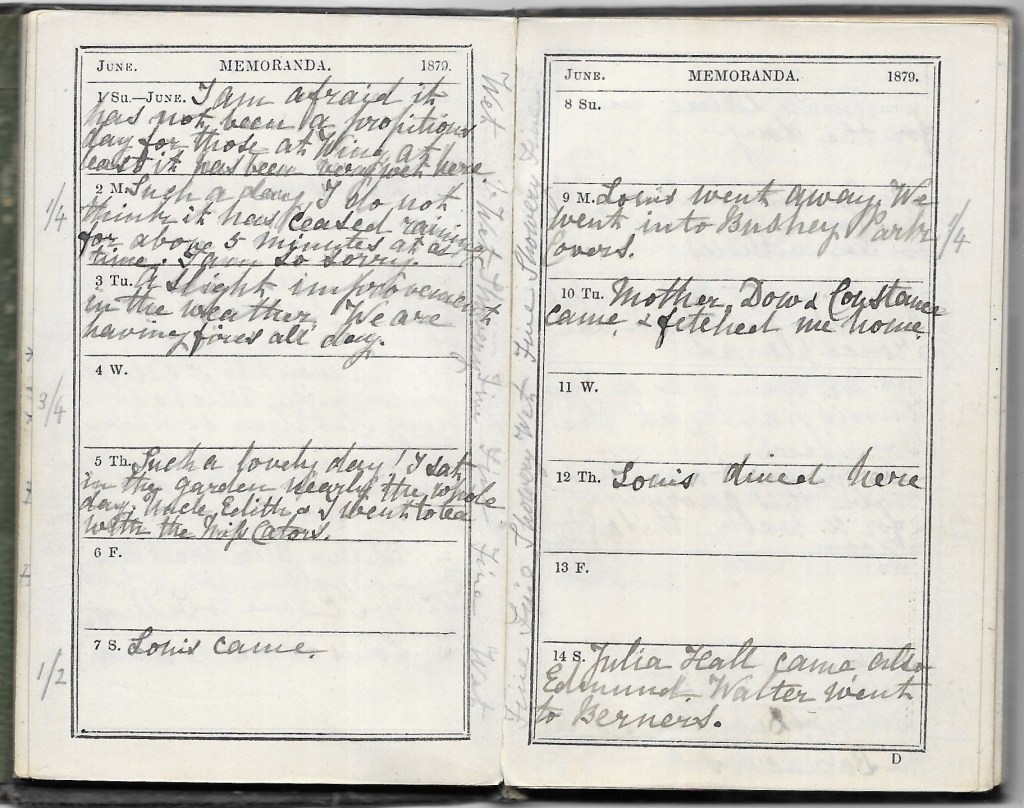 JUNE. MEMORANDA. 1879.
1 Su.—JUNE. I am afraid it
has not been a propitious
day for those at Wing at
least it has been very wet here
2 M. Such a day, I do not
think it has ceased raining
for above 5 minutes at a
time. I am so sorry.
3 Tu. A slight improvement
in the weather. We are
having fires all day.
4 W.
5 Th. Such a lovely day! I sat
in the garden nearly the whole
day. Uncle, Edith & I went to tea
with the Miss Cators.
6 F.
7 S. Louis came.
1/4
3/4
1/2
Wet Wet Showery Fine Fine Fine Wet
JUNE. MEMORANDA. 1879.
8 Su.
9 M. Louis went away. We
went into Bushey Park
Lovers.
10 Tu. Mother, Dow & Constance
came & fetched me home.
11 W.
12 Th. Louis dined here
13 F.
14 S. Julia Hall came also
Edmund. Walter went
to Berners.
1/4
Fine Fine Showery Wet Fine Showery Fine
D